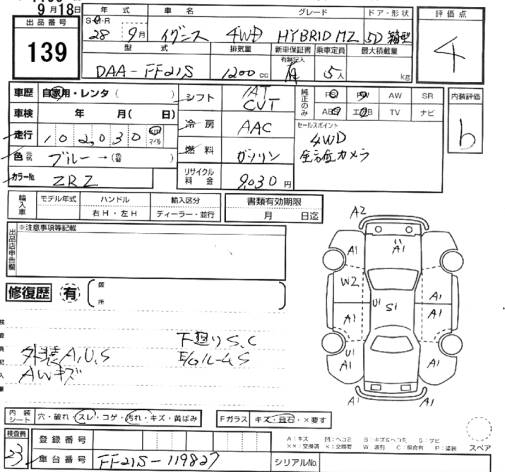 9月18日
年式 車名 グレード ドア・形状 評価点
出品番号
139
28年 9月 イグニス 4WD HYBRID MZ 5D 箱型
4
型式 排気量 新車保証書 乗車定員 最大積載量
DAA-FF21S 1200cc 有 5人 kg
車歴 自家用・レンタ ( )
シフト IAT CVT
純正のみ PS PW AW SR
ABS エアB TV ナビ
内装評価
b
車検 年 月( 日)
冷房 AAC
セールスポイント
4WD
全方位カメラ
走行 102030 km マイル
色 ブルー→( )
燃料 ガソリン
カラーNo. ZRZ
リサイクル料金 9,030円
輸入車 モデル年式 ハンドル 輸入区分
右H・左H ディーラー・並行
書類有効期限
月 日迄
出品店申告欄 ※注意事項等記載
修復歴 有 箇所
A2
A1 A1 A1
W2 U1 S1 A1
A1 A1
U1 A1 A1
A2
外装A,U,S 下廻りS,C
AWキズ E/GルームS
内装シート 穴・破れ スレ・コゲ・汚れ・キズ・黄ばみ
Fガラス キズ・飛石・×要す
検査員 登録番号
23 車台番号 FF21S-119827
シリアルNo.
スペア